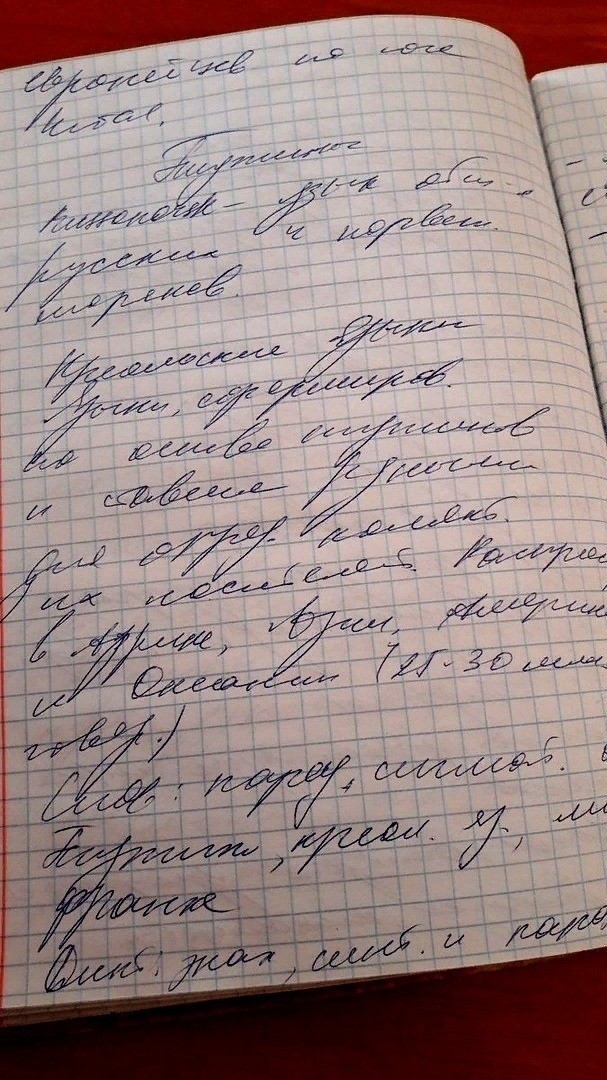 европейцев на юге
Китая.
Пиджины
Кяхтинск - язык общ-я
русских и норвеж.
моряков.
Креольские языки
языки, сформиров.
на основе пиджинов
и ставшие родными
для опред. коллект.
их носителей. Распрос
в Африке, Азии, Америк
и Океании (25-30 млн
говор.)
Слов: парад,
Пиджин, креол. яз.,
франка
знак, и пара